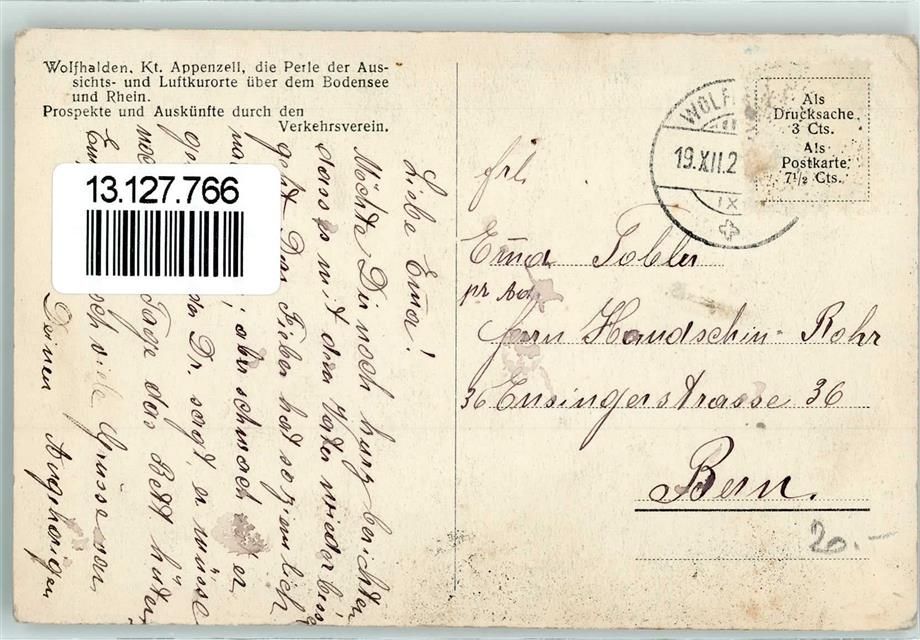 Wolfhalden, Kt. Appenzell, die Perle der Aus-
sichts- und Luftkurorte über dem Bodensee
und Rhein.
Prospekte und Auskünfte durch den
Verkehrsverein.
Liebe Erna!
Möchte Dir noch kurz berichten
dass es mit dem Vater wieder besser
geht. Das Fieber hat so ziemlich
aber schwach ist er
Dr. sagt, er müsse
noch Tage das Bett hüten
viele Grüsse von
Deinen Angehörigen
13.127.766
WOLF
19.XII.2
IX
Als
Drucksache
3 Cts.
Als
Postkarte
7½ Cts.
Frl.
Erna Tobler
pr Ad.
Herrn Handschin-Rohr
36 Ensingerstrasse 36
Bern.
20.-